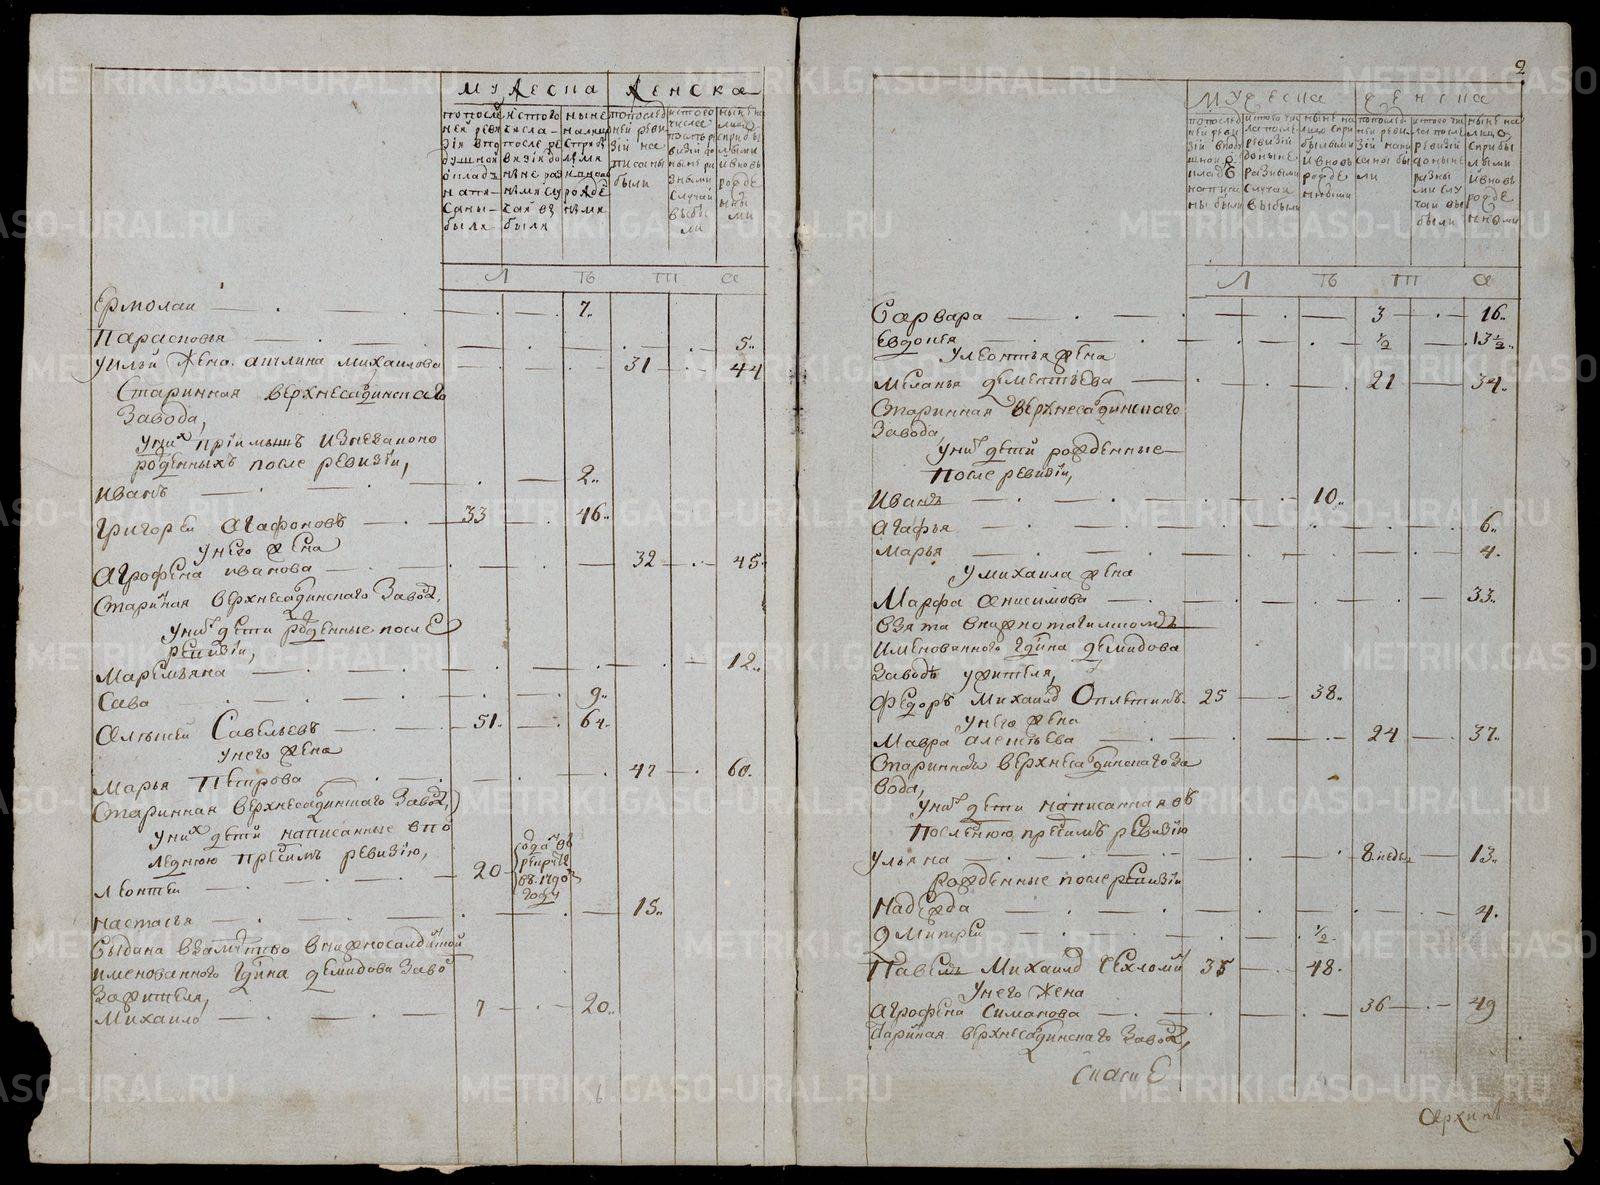 мужеска женска
по последней ревизии в подушной оклад написаны были
ис того числа после ревизии до ныне разными случаи выбыли
ныне на лицо с прибылыми и вновь рожденными
по последней ревизии написаны были
ис того числа после ревизии до ныне разными случаи выбыли
ныне на лицо с прибылыми и вновь рожденными
Л Ѣ Т а
Ермолаи 7
Парасковья 5
Уильи жена акилина михаилова 31 44
Старинная верхнесалдинскаго
завода,
Уних приімышъ
рожденныхъ после ревизіи,
Иванъ 2
Григореи агафоновъ 33 46
Унего жена
Агрофена иванова 32 45
Старинная верхнесалдинскаго завода,
Уних дети рожденные после
ревизіи,
Маремьяна 12
Сава 9
Алексеи Савельевъ 51 64
Унего жена
Марья Петрова 47 60
Старинная верхнесалдинскаго завода,
Уних дети написанные впо
леднюю пресимъ ревизию,
Леонтеи 20
году
настасья 15
Выдана взамужство внижносалдинской
именованного Гдина демидова заво
зажителя,
Михаило 7 20
2
мужеска женска
по последней ревизии в подушной оклад написаны были
ис того числа после ревизии до ныне разными случаи выбыли
ныне на лицо с прибылыми и вновь рожденными
по последней ревизии написаны были
ис того числа после ревизии до ныне разными случаи выбыли
ныне на лицо с прибылыми и вновь рожденными
Л Ѣ Т а
Варвара 3 16
Евдокея 1/2 13 1/2
Улеонтья жена
Меланья дементьева 21 34
Старинная верхнесалдинскаго
завода,
Уних дети рожденные
После ревизіи,
Иванъ 10
Агафья 6
Марья 4
Умихаила жена
Марфа анисимова 33
взята внижнотагилскомъ
именованного Гдина демидова
заводе ужителя,
Федоръ Михаилов Оплеткинъ 25 38
Унего жена
Мавра алексеева 24 37
Стариннаи верхнесалдинскаго за
вода,
Уних дети написанная въ
Последнюю пресимъ ревизию
Ульяна 8 недел 13
Рожденные после ревизіи
Надежда 4
Дмитреи 1/2
Павелъ Михаилов 35 48
Унего жена
Агрофена Симанова 36 49
Старинная верхнесалдинскаго завода,
Архипъ
METRIKI.GASO-URAL.RU